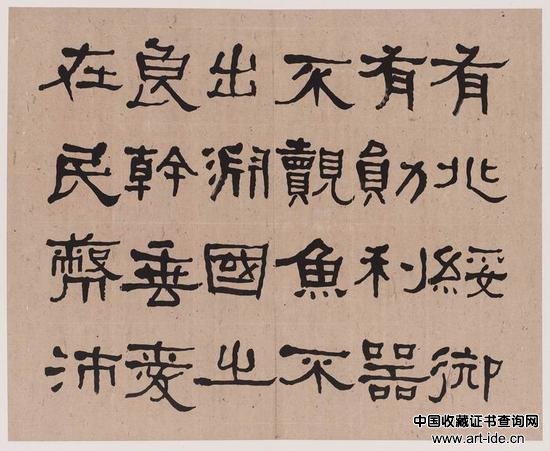 有兆綏御
有勛利器
不覿魚不
出淵國之
良幹垂愛
在民蔽沛
中国收藏证书查询网
www.art-ide.cn